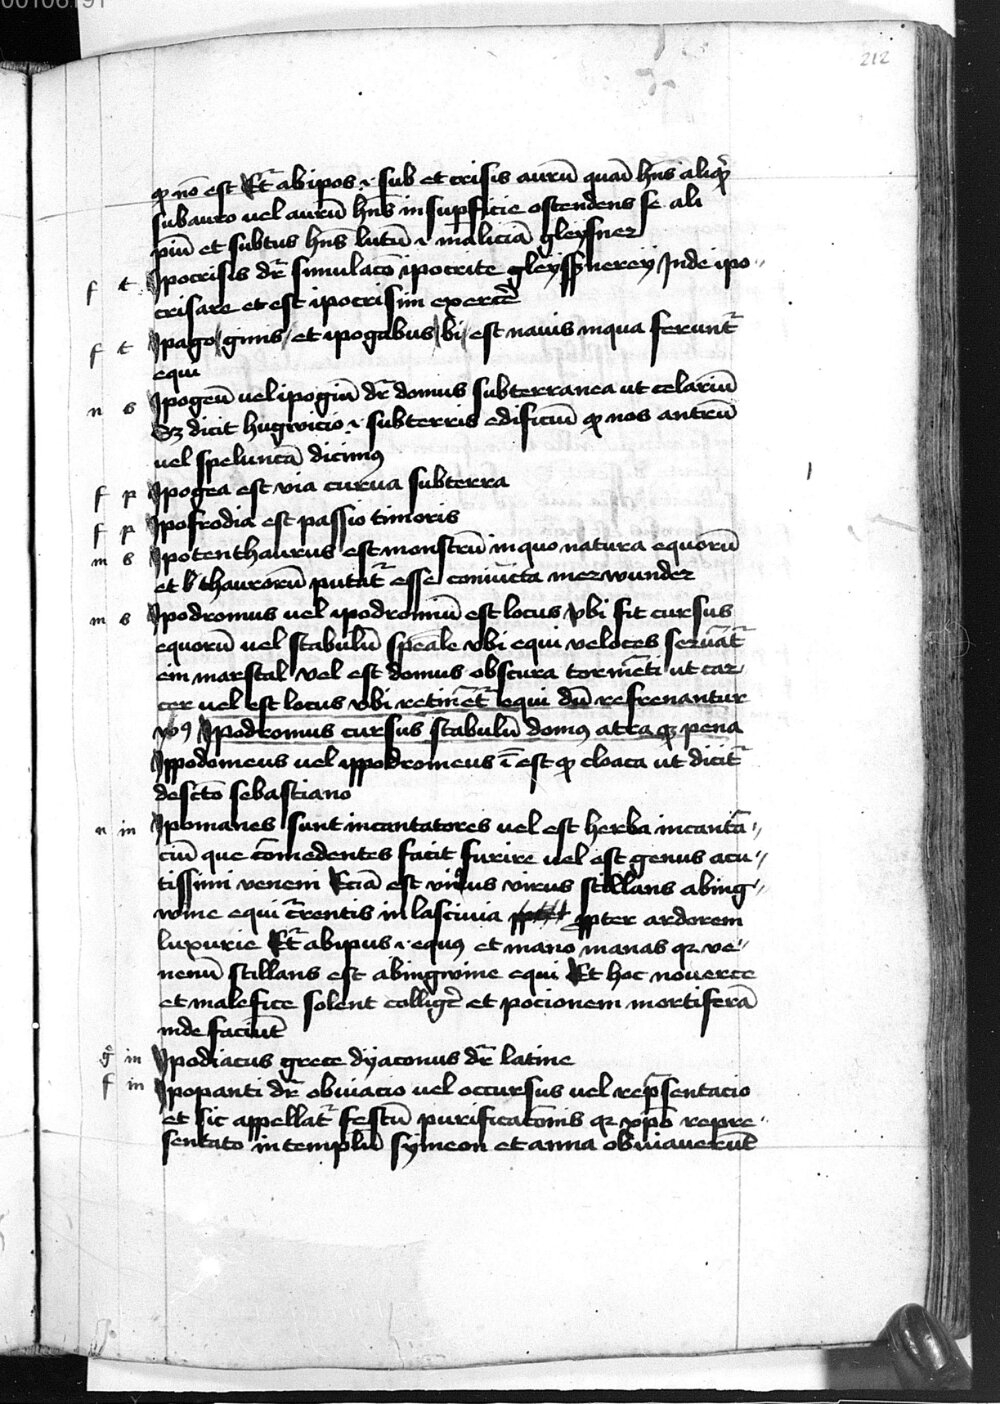 00106191
212
qp nō est Et̄ ab ipos .i. sub et crisis aurū quaſi hn̄s aliq̄
sub auro uel aurū hn̄s in supficie ostendens se ali
piū et subtus hn̄s lutū .i. maliciā gleyſner
f t Ipocrisis dr̄ simulacō ipocrite gleyſſnerey Inde ipo
crisare et est ipocrisim exercē
f t Ipago ginis et ipogabus bi est nauis in qua ferunt̄
equi
n s Ipogeū uel ipogiū dr̄ domus subterranea ut celariū
Sz dicit hugwicio .i. subterris edificiū qp nos antrū
uel speluncā dicimꝰ
f p Ipogea est via curua sub terra
f p Ipofrodia est passio timoris
m s Ipotenthaurus est monstrū in quo natura equorū
et thaurorū putat̄ esse coniūcta merwunder
m s Ipodromus uel ipodromiū est locus vbi fit cursus
equorū uel stabulū spēale vbi equi veloces seruāt̄
ein marstal vel est domus obscura tormēti ut car
cer uel est locus vbi retinēt̄ equi dū refrenantur
vꝰ Ipodromus cursus stabulū domꝰ atra qz pena
Ippodomeus uel ippodromeus ī est qp cloaca ut dicit̄
de scto sebastiano
n in Ipomanes sunt incantatores uel est herba incantā
ciū que cōmedentes facit furire uel est genus acu
tissimi veneni Eciā est virus stillans ab ing
wine equi in lascinia ꝓpter ardorem
luxurie Et̄ ab ipus .i. equꝰ et mano manas qz ve
nenū stillans est ab ingwine equi Et hoc nouerce
et malefice solent colligē et pocionem mortiferā
inde faciūt
g in Ipodiacus grece dyaconus dr̄ latine
f in Ipopanti dr̄ obuiacio uel occursus uel rep̄sentacio
et sic appellat̄ festū purificacōnis qz xpō repre
sentato in templū symeon et anna obuiauerūt